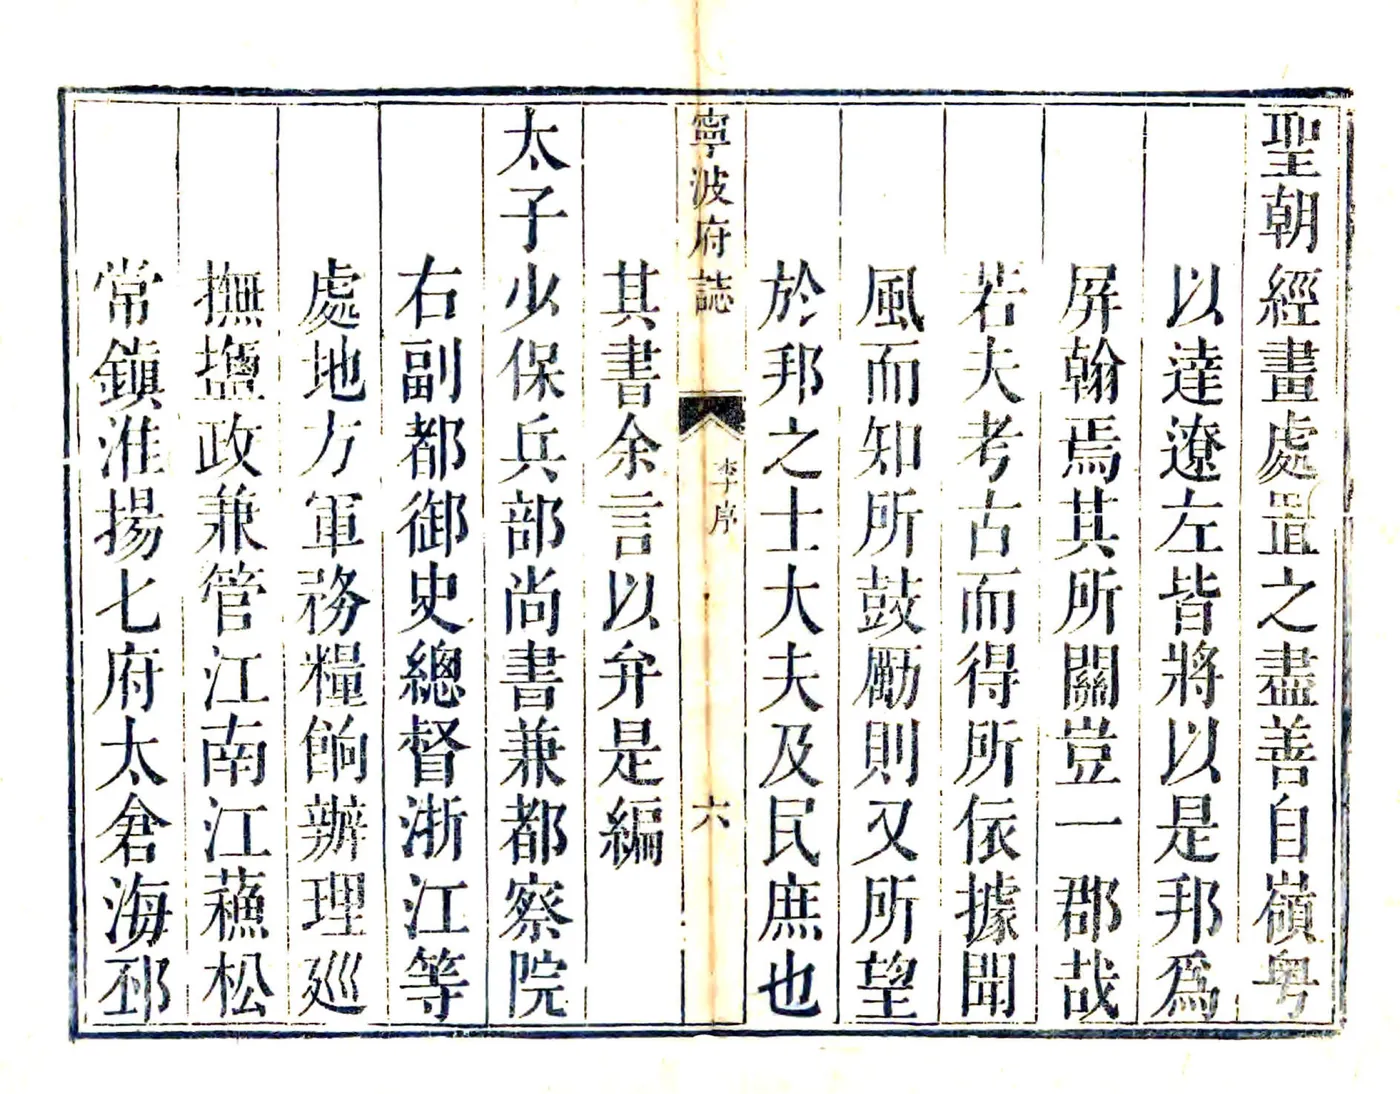 聖朝經畫處置之盡善自嶺粵
以達遼左皆將以是邦爲
屏翰焉其所關豈一郡哉
若夫考古而得所依據聞
風而知所鼓勵則又所望
於邦之士大夫及民庶也
寧波府誌
李序
六
其書余言以弁是編
太子少保兵部尚書兼都察院
右副都御史總督浙江等
處地方軍務糧餉辦理巡
撫鹽政兼管江南江蘓松
常鎮淮揚七府太倉海邳